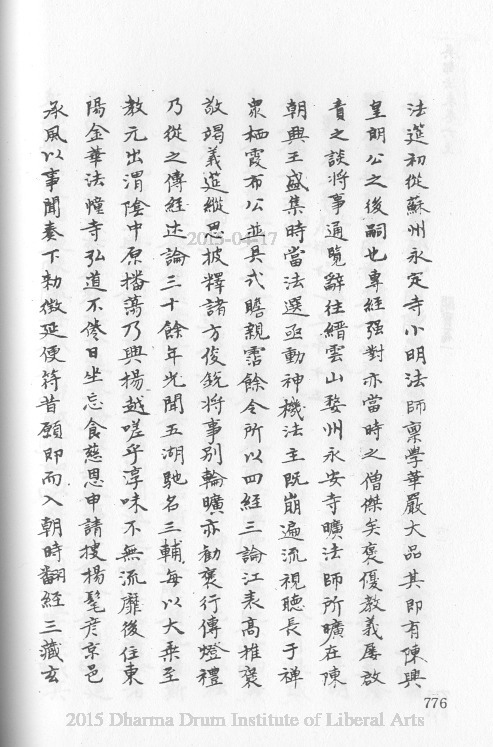 法筵初從蘇州永定寺小明法師禀學華嚴大品其即有陳興
皇朗公之後嗣也專經强對亦當時之僧傑矣褒優教義屡啟
賁之談將事通覽辭往縉雲山婺州永安寺曠法師所曠在陳
朝興王盛集時當法選亟動神機法主既崩遍流視聽長于禅
衆栖霞布公並具式瞻親霑餘令所以四經三論江表高推褒
敬竭義筵縱思披釋諸方俊鋭將事别輪曠亦勸褒行傳燈禮
乃從之傳經述論三十餘年光聞五湖馳名三輔每以大乗至
教元出渭陰中原播蕩乃興揚越嗟乎淳味不無流靡後住東
陽金華法幢寺弘道不倦日坐忘食慈恩申請搜楊髦彦京邑
承風以事聞奏下勑徴延便符昔願即而入朝時翻經三藏玄
776
2015-04-17
2015 Dharma Drum Institute of Liberal Arts